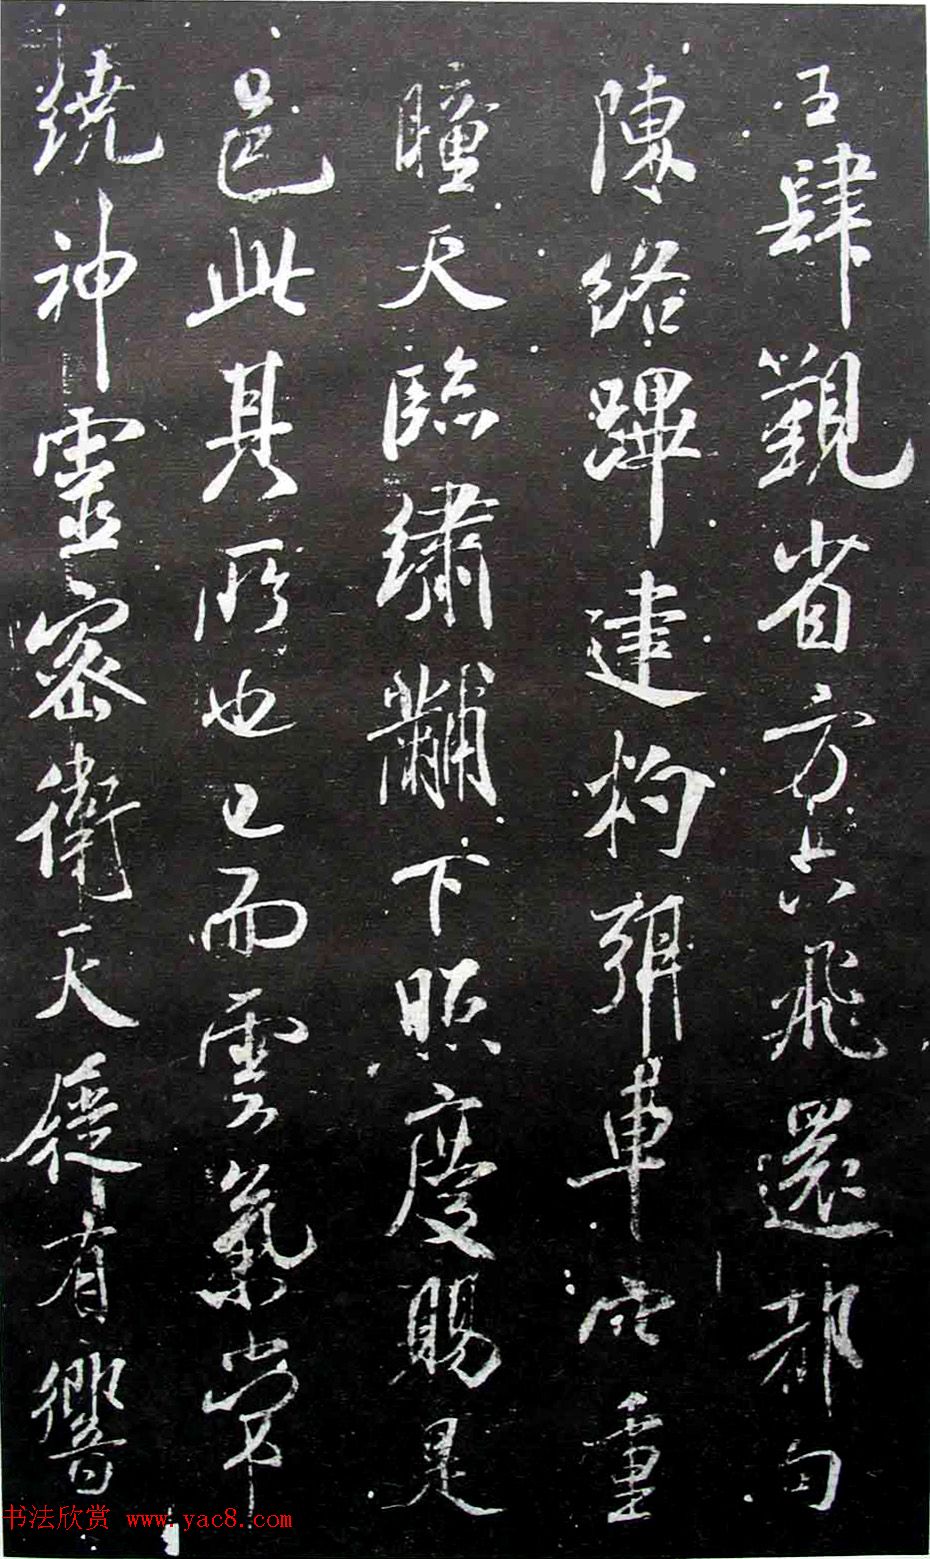 五肆覲省方六飛還都句
陳絡蹕建杓弭車重
瞳天臨繡黼下照度賜是
邑此其所也已而雲氣常
繞神靈密衛天有響
书法欣赏 www.yac8.com